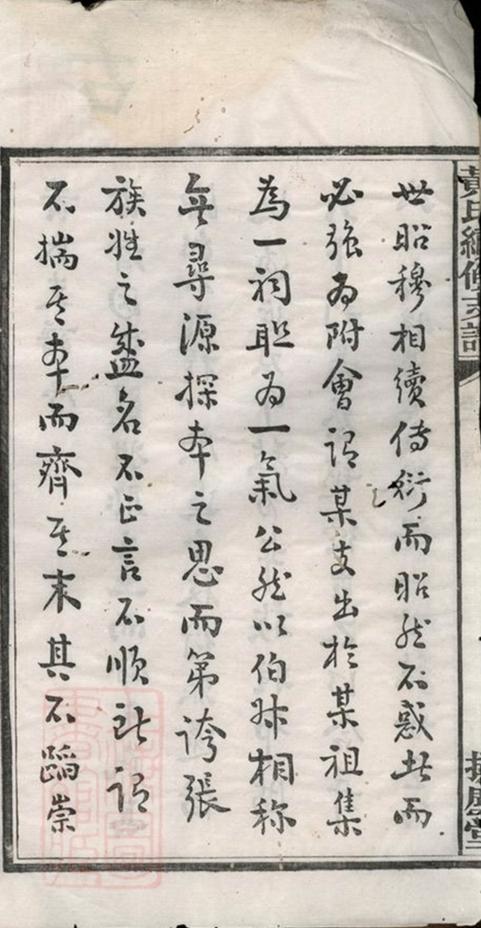 世昭穆相續傳衍而昭然不惑此而
必強為附會謂某支出於某祖集
為一祠聯為一氣公然以伯叔相称
無尋源探本之思而第誇張
族姓之盛名不正言不順此謂
不揣其本而齊其末其不蹈崇
黄氏續修支譜